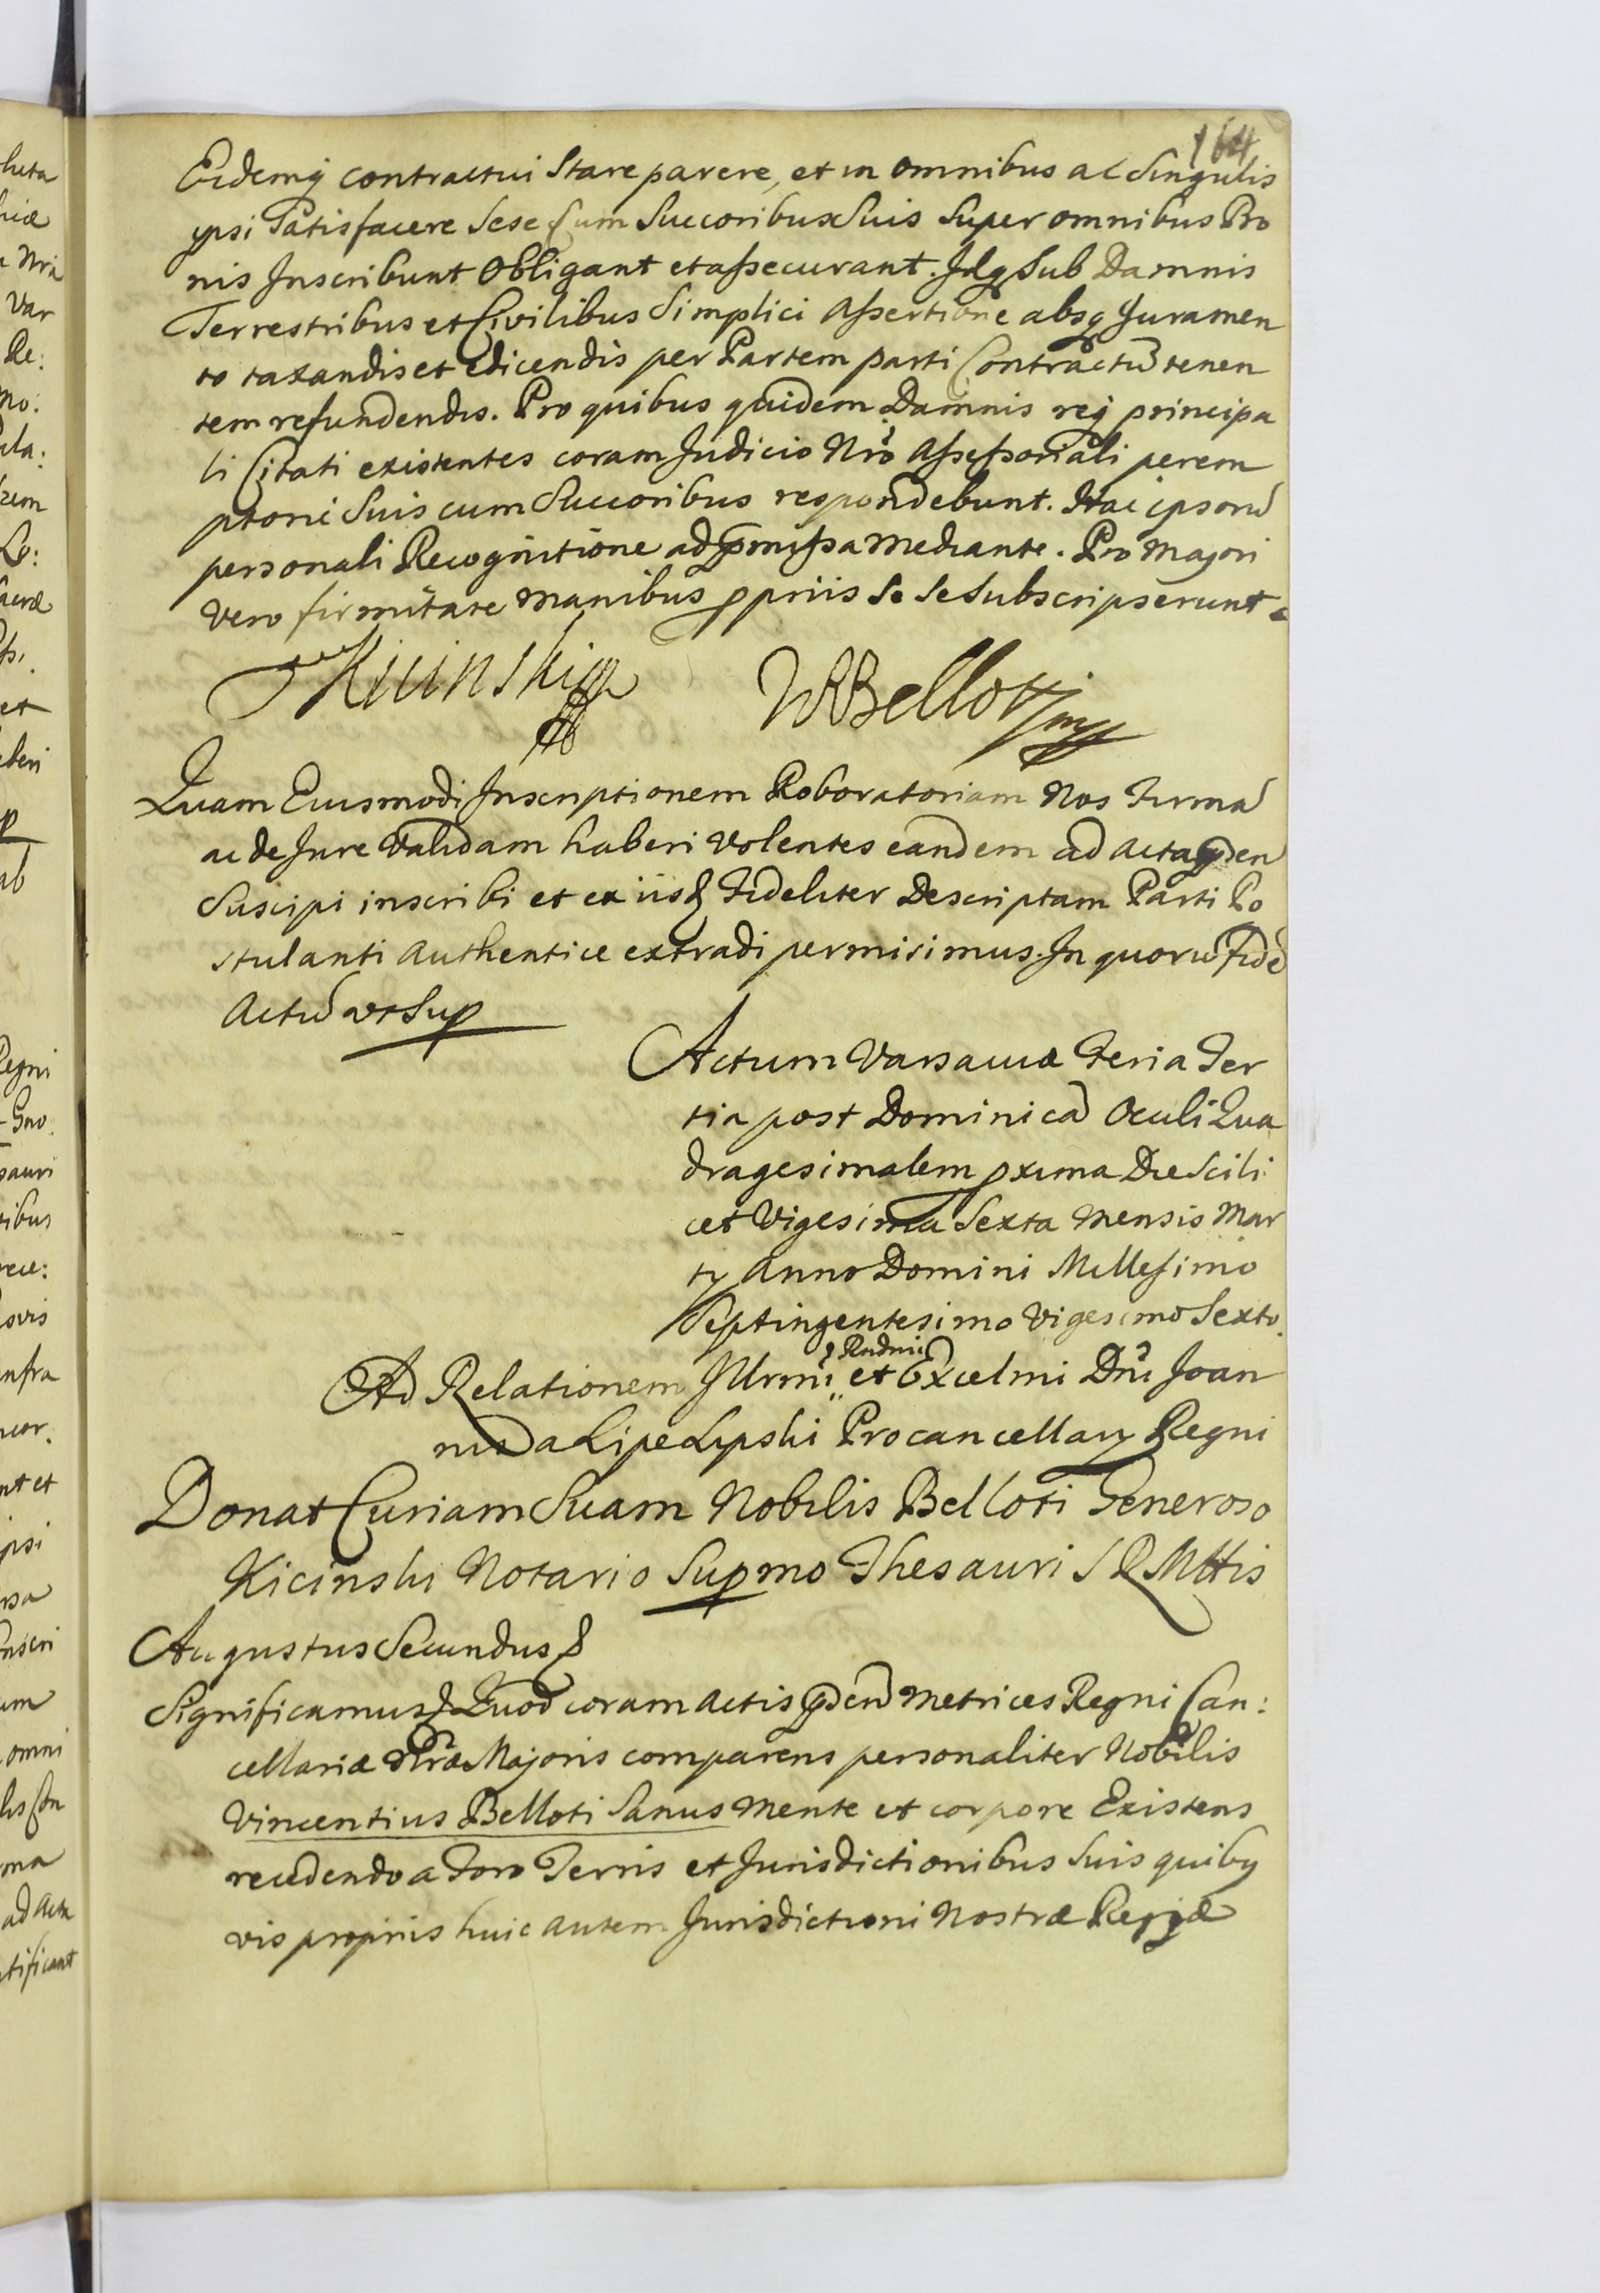 164
Eidemq̃ contractui Stare parere, et in omnibus ac Singulis
ipsi Satisfacere Sese Cum Succoribus Suis Super omnibus Bo
nis Inscribunt Obligant et aßecurant. Idq Sub Damnis
Terrestribus et Civilibus Simplici Aßertione absq Juramen
to taxandis et edicendis per Partem parti Contractũ tenen
tem refundendis. Pro quibus quidem Damnis reij principa
li Citati existentes coram Judicio Nrõ Aßeßoriali perem
ptorie Suis cum Succoribus respondebunt. Hac ipsorũ
personali Recognitione ad p̃mißa mediante. Pro Majori
vero firmitate manibus ppriis Se Se Subscripserunt
Kicinski mp
Bellotti mp
Quam Eiusmodi Inscriptionem Roboratoriam Nos Firmã
ac de Jure Validam haberi volentes eandem ad acta p̃den
Suscipi inscribi et ex iisd Fideliter Descriptam Parti Po
stulanti Authentice extradi permisimus. In quorũ Fidẽ
Actũ ut Sup
Actum Varsaviæ Feria Ter
tia post Dominicã Oculi Qua
dragesimalem pxima Die Scili
cet Vigesima Sexta Mensis Mar
tij Anno Domini Millesimo
Septingentesimo Vigesimo Sexto.
Ad Relationem Illrmi et Rndmi Excelmi Dnĩ Joan
nis a Lipe Lipski Procancellarij Regni
Donat Curiam Suam Nobilis Belloti Generoso
Kicinski Notario Supmo Thesauri S R Mttis
Augustus Secundus &
Significamus & Quod coram Actis p̃den Metrices Regni Can:
cellariæ Nræ Majoris comparens personaliter Nobilis
Vincentius Belloti Sanus mente et corpore Existens
recedendo a Foro Terris et Jurisdictionibus Suis quibus
vis propriis huic autem Jurisdictioni Nostræ Regiæ